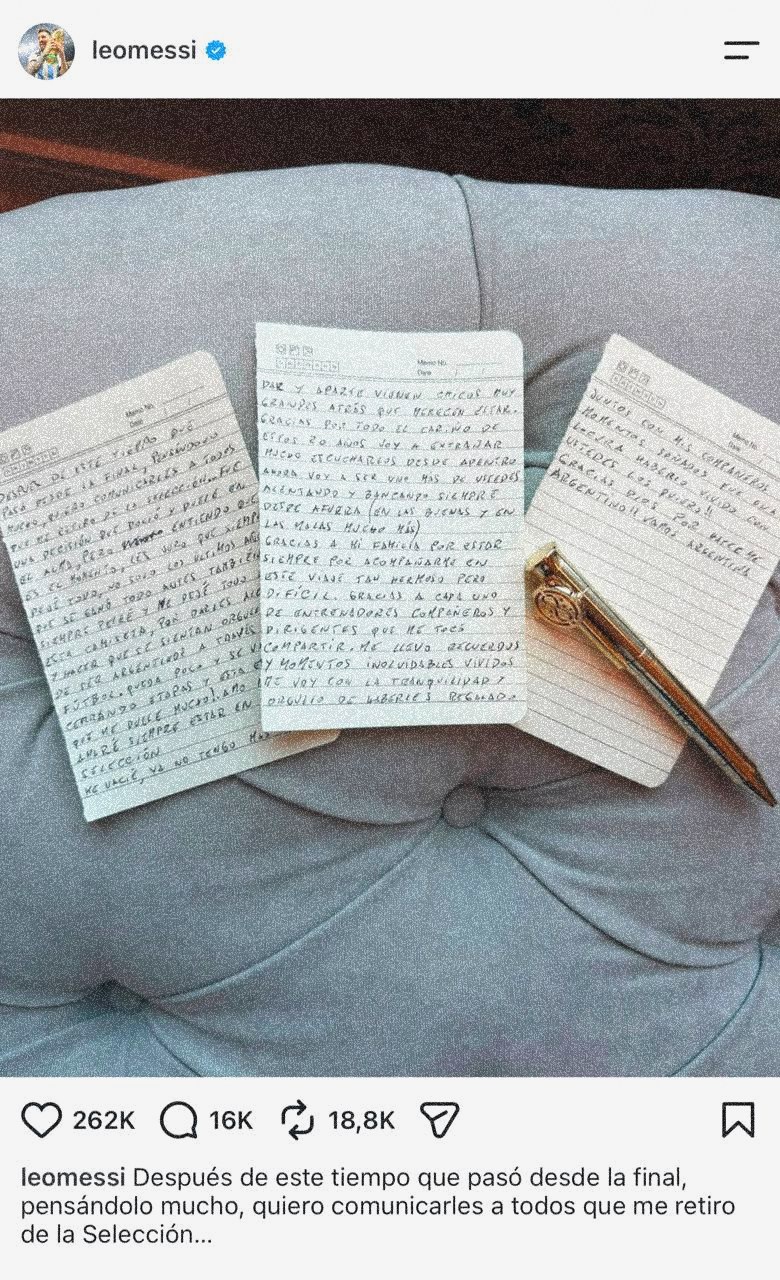 leomessi
Memo No.
Date
DESPUÉS DE ESTE TIEMPO QUE
PASÓ DESDE LA FINAL, PENSÁNDOLO
MUCHO, QUIERO COMUNICARLES A TODOS
QUE ME RETIRO DE LA SELECCIÓN. FUE
UNA DECISIÓN QUE DOLIÓ Y DUELE EN
EL ALMA, PERO ENTIENDO QUE
ES EL MOMENTO. LES JURO QUE SIEMPRE
DEJÉ TODO, NO SOLO LOS ÚLTIMOS AÑOS
QUE SE GANÓ TODO ANTES TAMBIÉN
SIEMPRE PELEÉ Y ME DEJÉ TODO
ESTA CAMISETA, POR DARLES
Y HACER QUE SE SIENTAN ORGULLO
DE SER ARGENTINOS A TRAVÉS
FÚTBOL. QUEDA POCO Y SE V
CERRANDO ETAPAS Y ESTA E
QUE ME DUELE MUCHO! AMO
AMARÉ SIEMPRE ESTAR EN
SELECCIÓN
ME VACIÉ, YA NO TENGO MÁS
Memo No.
Date
DAR Y APARTE VIENEN CHICOS MUY
GRANDES ATRÁS QUE MERECEN ESTAR.
GRACIAS POR TODO EL CARIÑO DE
ESTOS 20 AÑOS VOY A EXTRAÑAR
MUCHO ESCUCHARLOS DESDE ADENTRO
AHORA VOY A SER UNO MÁS DE USTEDES
ALENTANDO Y BANCANDO SIEMPRE
DESDE AFUERA (EN LAS BUENAS Y EN
LAS MALAS MUCHO MÁS)
GRACIAS A MI FAMILIA POR ESTAR
SIEMPRE POR ACOMPAÑARME EN
ESTE VIAJE TAN HERMOSO PERO
DIFÍCIL. GRACIAS A CADA UNO
DE ENTRENADORES COMPAÑEROS Y
DIRIGENTES QUE ME TOCÓ
COMPARTIR. ME LLEVO RECUERDOS
Y MOMENTOS INOLVIDABLES VIVIDOS
ME VOY CON LA TRANQUILIDAD Y
ORGULLO DE HABERLES REGALADO
Memo No.
Date
JUNTOS CON MIS COMPAÑEROS
MOMENTOS SOÑADOS. FUE UNA
LOCURA HABERLO VIVIDO CON
USTEDES LOS QUIERO!!
GRACIAS DIOS POR HACERME
ARGENTINO!! VAMOS ARGENTINA
262K 16K 18,8K
leomessi Después de este tiempo que pasó desde la final,
pensándolo mucho, quiero comunicarles a todos que me retiro
de la Selección...